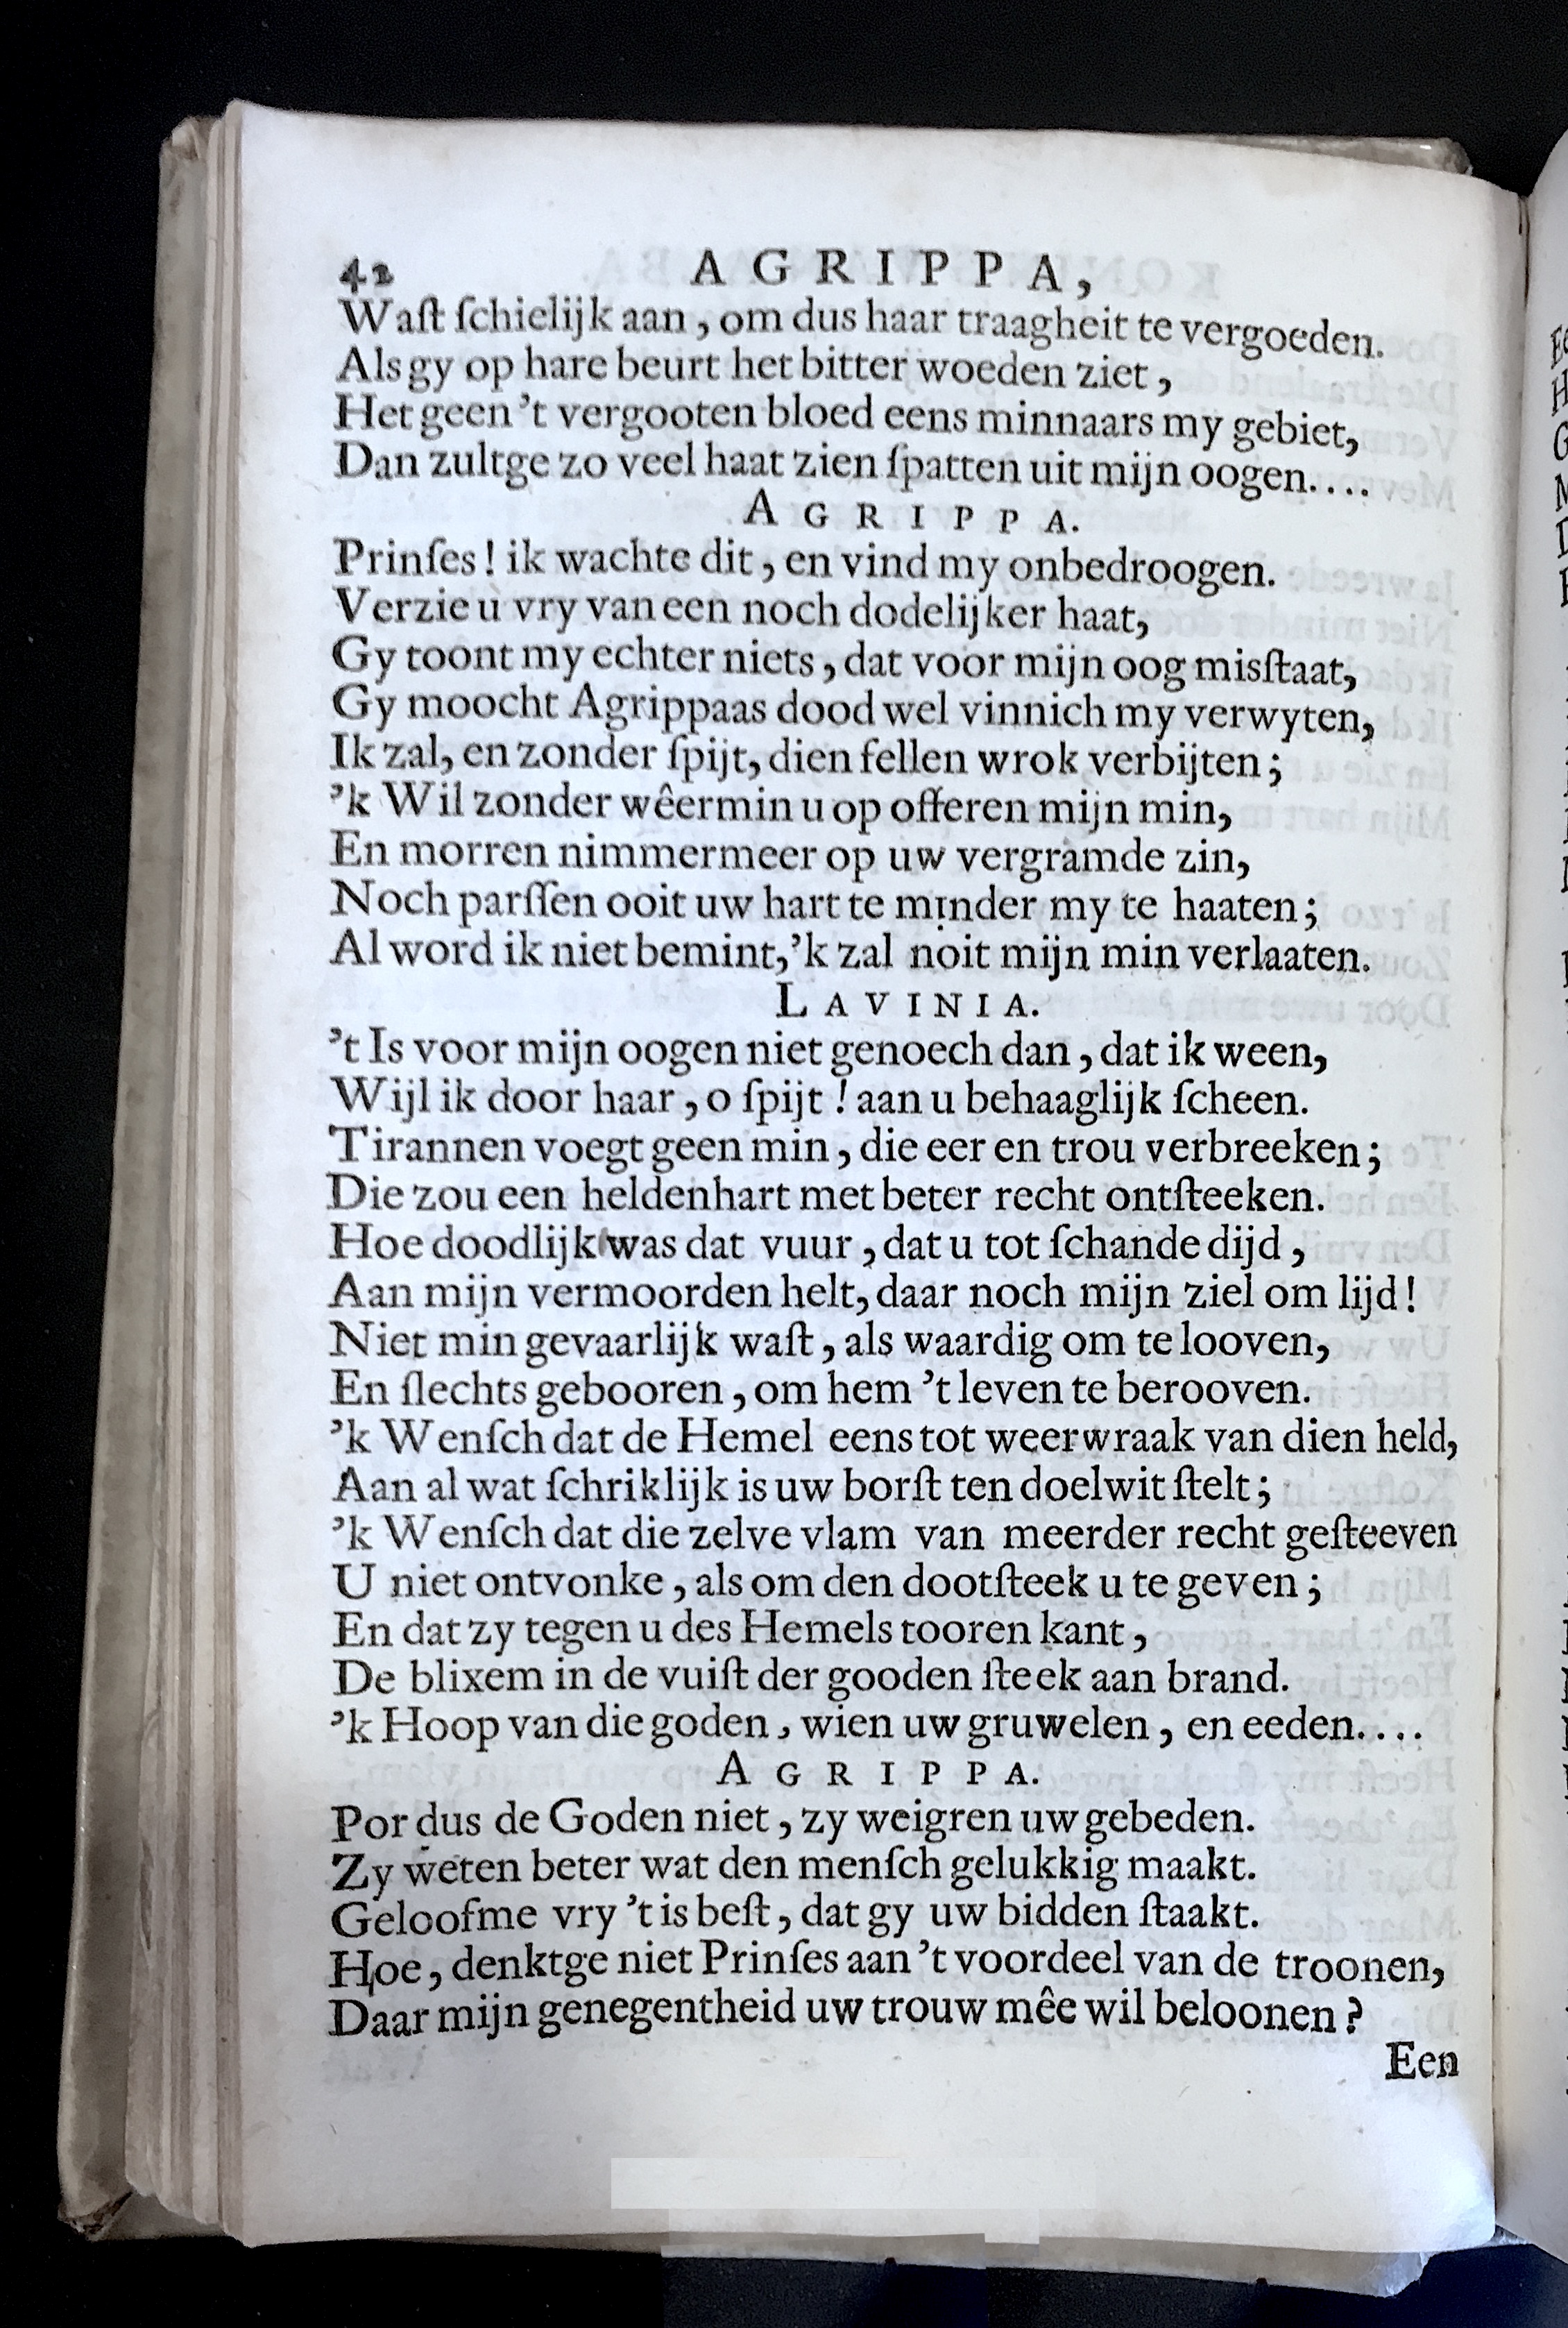 42 AGRIPPA,
Waſt ſchielijk aan, om dus haar traagheit te vergoeden.
Als gy op hare beurt het bitter woeden ziet,
Het geen 't vergooten bloed eens minnaars my gebiet,
Dan zultge zo veel haat zien ſpatten uit mijn oogen....
AGRIPPA.
Prinſes! ik wachte dit, en vind my onbedroogen.
Verzie u vry van een noch dodelijker haat,
Gy toont my echter niets, dat voor mijn oog misſtaat,
Gy moocht Agrippaas dood wel vinnich my verwyten,
Ik zal, en zonder ſpijt, dien fellen wrok verbijten;
'k Wil zonder wêermin u op offeren mijn min,
En morren nimmermeer op uw vergramde zin,
Noch parſſen ooit uw hart te minder my te haaten;
Al word ik niet bemint, 'k zal noit mijn min verlaaten.
LAVINIA.
't Is voor mijn oogen niet genoech dan, dat ik ween,
Wijl ik door haar, o ſpijt! aan u behaaglijk ſcheen.
Tirannen voegt geen min, die eer en trou verbreeken;
Die zou een heldenhart met beter recht ontſteeken.
Hoe doodlijk was dat vuur, dat u tot ſchande dijd,
Aan mijn vermoorden helt, daar noch mijn ziel om lijd!
Niet min gevaarlijk waſt, als waardig om te looven,
En ſlechts gebooren, om hem 't leven te berooven.
'k Wenſch dat de Hemel eens tot weerwraak van dien held,
Aan al wat ſchriklijk is uw borſt ten doelwit ſtelt;
'k Wenſch dat die zelve vlam van meerder recht geſteeven
U niet ontvonke, als om den dootſteek u te geven;
En dat zy tegen u des Hemels tooren kant,
De blixem in de vuiſt der gooden ſteek aan brand.
'k Hoop van die goden, wien uw gruwelen, en eeden....
AGRIPPA.
Por dus de Goden niet, zy weigren uw gebeden.
Zy weten beter wat den menſch gelukkig maakt.
Geloofme vry 't is beſt, dat gy uw bidden ſtaakt.
Hoe, denktge niet Prinſes aan 't voordeel van de troonen,
Daar mijn genegentheid uw trouw mêe wil beloonen?
Een